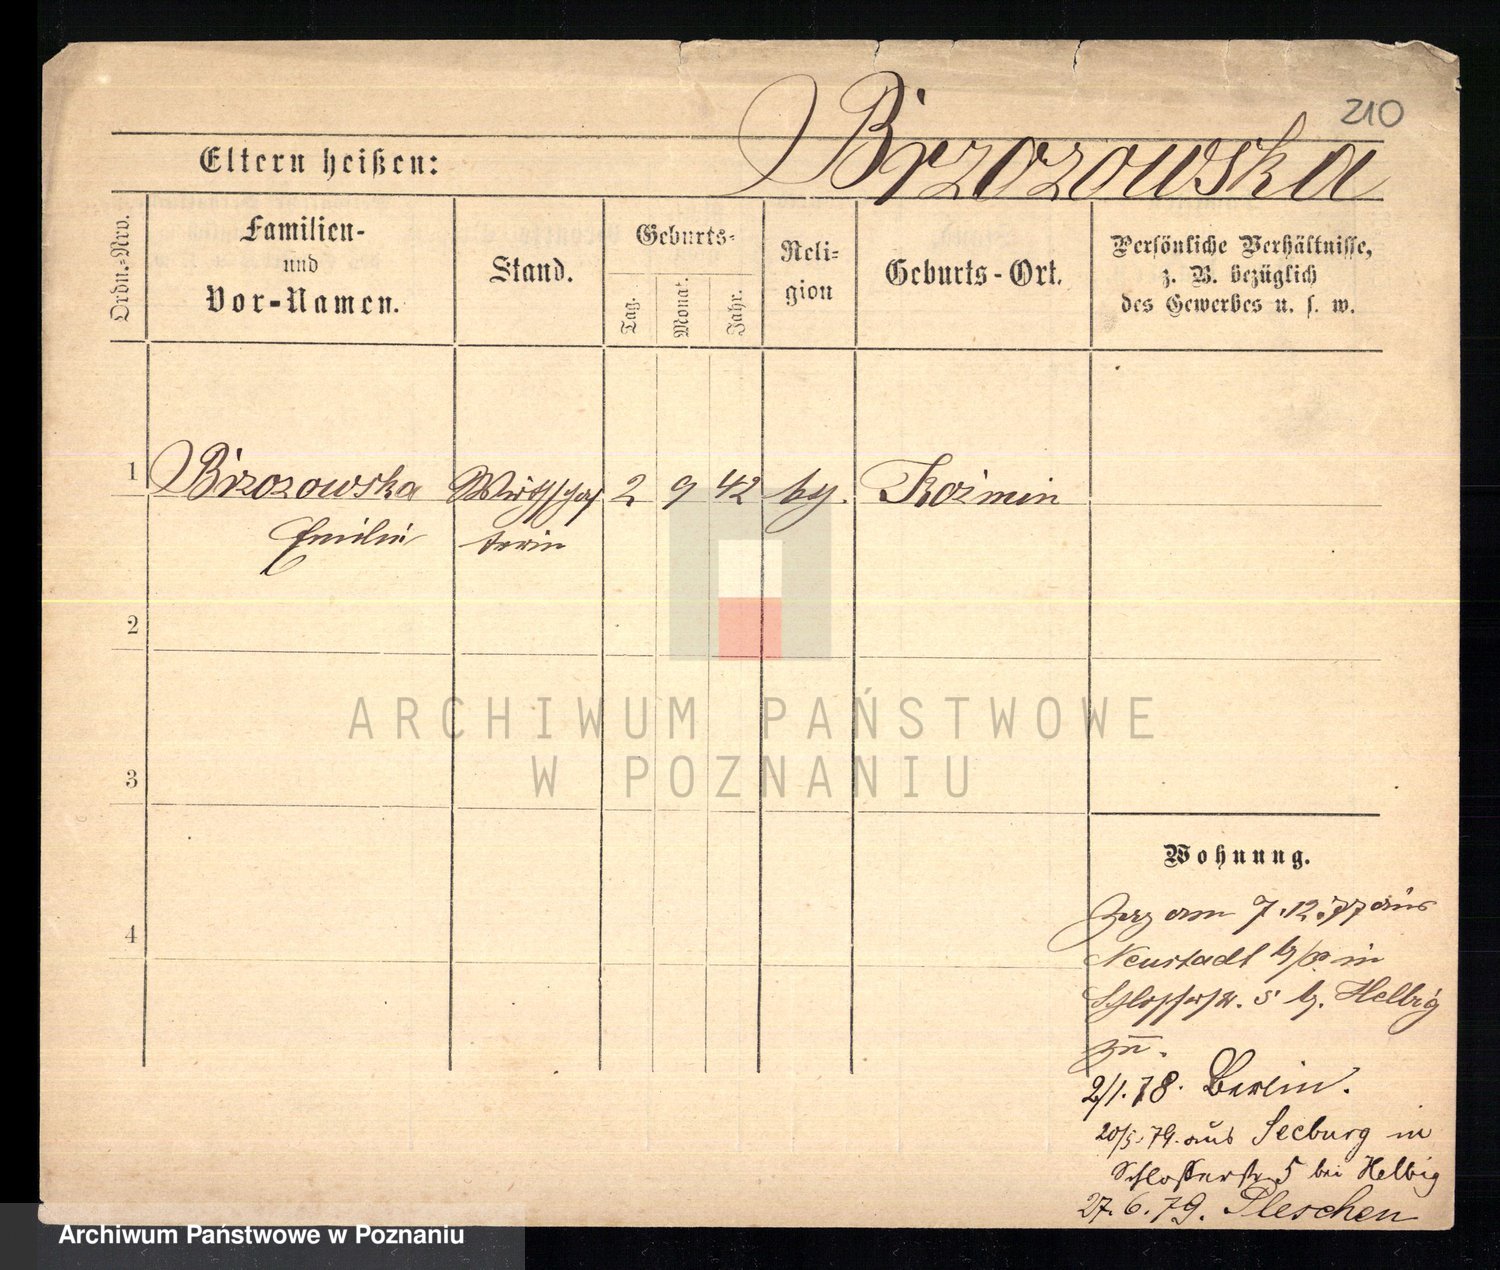 210
Brzozowska
Eltern heißen:
Ordn.-Nro.
Familien-
und
Vor-Namen.
Stand.
Geburts-
Tag.
Monat.
Jahr.
Reli-
gion
Geburts-Ort.
Persönliche Verhältnisse,
z. B. bezüglich
des Gewerbes u. s. w.
1 Brzozowska Wirthschaf 2 9 42 Koźmin
Emilie terin
2
3
4
ARCHIWUM PAŃSTWOWE
W POZNANIU
Wohnung.
am 7.12.77 aus
Neustadt b/P in
Schlosserstr. 5 b. Helbig
zu.
2/1.78. Berlin.
20/5.79. aus Seeburg in
Schlosserstr 5 bei Helbig
27.6.79. Pleschen
Archiwum Państwowe w Poznaniu